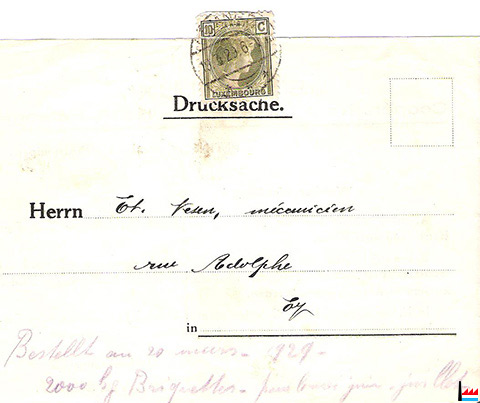 10 C
LUXEMBOURG
Drucksache.
Herrn Et. Vesen, mécanicien
rue Adolphe
in Ey
Bestellt am 20 mars - 1929 -
2000 kg Briquettes -